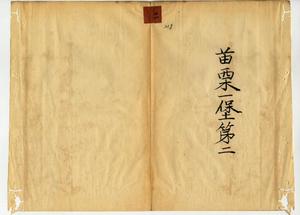 苗栗一堡第二